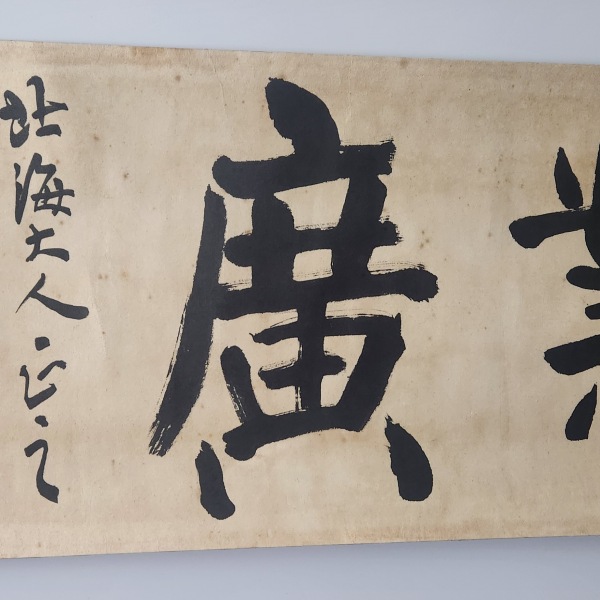 廣
北海大人正之